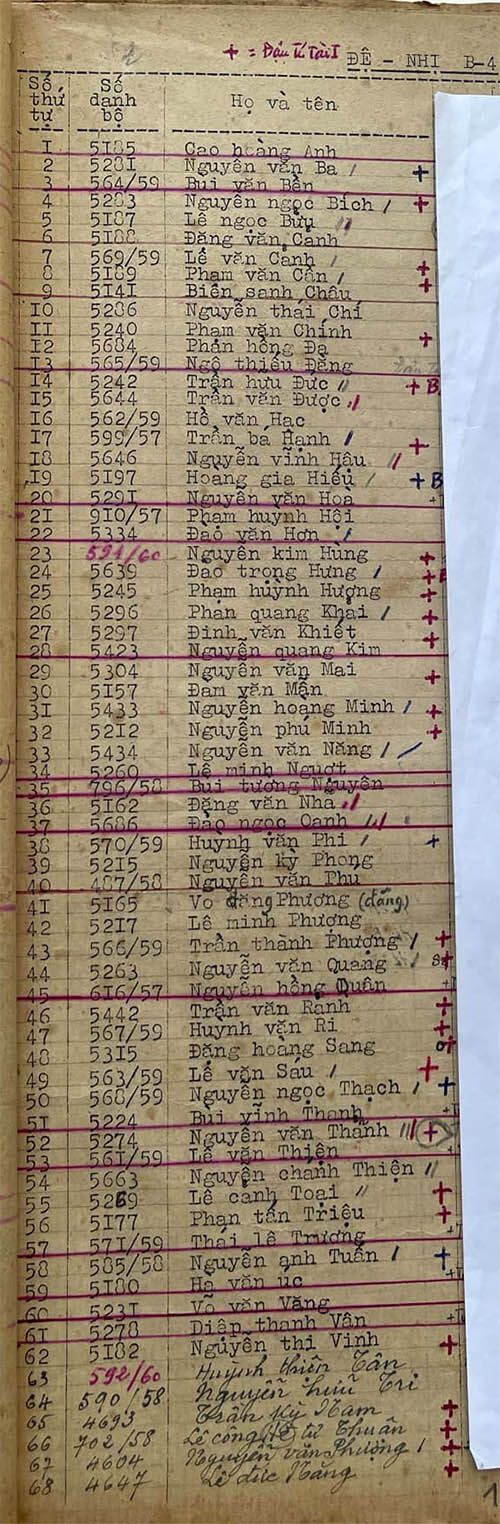 + = Đậu Tú Tài I
ĐỆ - NHỊ B-4
Số thứ tự Số danh bộ Họ và tên
1 5185 Cao hoàng Anh
2 5281 Nguyễn văn Ba / +
3 564/59 Bùi văn Bền
4 5283 Nguyễn ngọc Bích / +
5 5187 Lê ngọc Bửu //
6 5188 Đặng văn Canh
7 569/59 Lê văn Cảnh /
8 5189 Phạm văn Cẩn / +
9 5141 Biên sanh Châu +
10 5286 Nguyễn thái Chí
11 5240 Phạm văn Chính
12 5684 Phan hồng Đa +
13 565/59 Ngô thiếu Đằng
14 5242 Trần hưu Đức // + B
15 5644 Trần văn Được //
16 562/59 Hồ văn Hạc
17 599/57 Trần bá Hạnh / +
18 5646 Nguyễn vĩnh Hậu //
19 5197 Hoàng gia Hiếu / + B
20 5291 Nguyễn văn Hoa +
21 910/57 Phạm huỳnh Hội
22 5334 Đào văn Hơn /
23 594/60 Nguyễn kim Hùng +
24 5639 Đào trọng Hưng / +
25 5245 Phạm huỳnh Hương +
26 5296 Phan quang Khai / +
27 5297 Đinh văn Khiết +
28 5423 Nguyễn quang Kim
29 5304 Nguyễn văn Mai +
30 5157 Đàm văn Mận
31 5433 Nguyễn hoàng Minh / +
32 5212 Nguyễn phú Minh +
33 5434 Nguyễn văn Năng / /
34 5260 Lê minh Ngươt
35 796/58 Bùi tường Nguyên
36 5162 Đặng văn Nhã //
37 5686 Đào ngọc Oanh ///
38 570/59 Huỳnh văn Phi / +
39 5215 Nguyễn kỳ Phong
40 487/58 Nguyễn văn Phu
41 5165 Vo đăng Phương (đăng)
42 5217 Lê minh Phượng
43 566/59 Trần thành Phượng / +
44 5263 Nguyễn văn Quang / +
45 616/57 Nguyễn hồng Quân +
46 5442 Trần văn Ranh +
47 567/59 Huỳnh văn Ri +
48 5315 Đặng hoàng Sang +
49 563/59 Lê văn Sáu / +
50 568/59 Nguyễn ngọc Thạch / +
51 5224 Bùi vĩnh Thanh +
52 5274 Nguyễn văn Thành /// +
53 561/59 Lê văn Thiện +
54 5663 Nguyễn chánh Thiện //
55 5269 Lê cảnh Toại // +
56 5177 Phan tấn Triệu +
57 571/59 Thái lê Trương +
58 585/58 Nguyễn anh Tuấn / +
59 5180 Hà văn úc +
60 5231 Võ văn Văng
61 5278 Diệp thanh Vân +
62 5182 Nguyễn thi Vinh +
63 592/60 Huỳnh thiên Tân
64 590/58 Nguyễn hữu Tri
65 4693 Trần Kỳ Nam +
66 702/58 Lê công tử Thuần +
67 4604 Nguyễn văn Phượng / +
68 4647 Lê đức Năng +
1